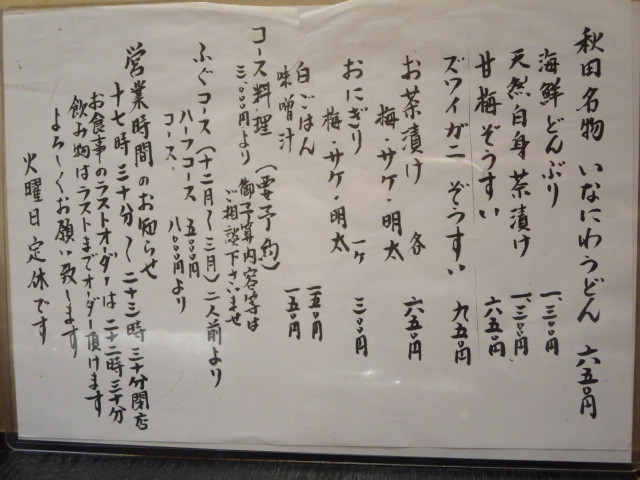 秋田名物 いなにわうどん 六五〇円
海鮮どんぶり 一、三〇〇円
天然白身茶漬け 一、三〇〇円
甘梅ぞうすい 六五〇円
ズワイガニ ぞうすい 九五〇円
お茶漬け 各 六五〇円
梅・サケ・明太
おにぎり 一ヶ 三〇〇円
梅・サケ・明太
白ごはん 二五〇円
味噌汁 一五〇円
コース料理(要予約)
三、〇〇〇円より 御予算内容等は
ご相談下さいませ
ふぐコース(十二月〜三月)二人前より
ハーフコース 五〇〇〇円
コース、 八〇〇〇円より
営業時間のお知らせ
十七時三十分〜二十三時三十分閉店
お食事のラストオーダーは二十二時三十分
飲み物はラストまでオーダー頂けます
よろしくお願い致します
火曜日定休です